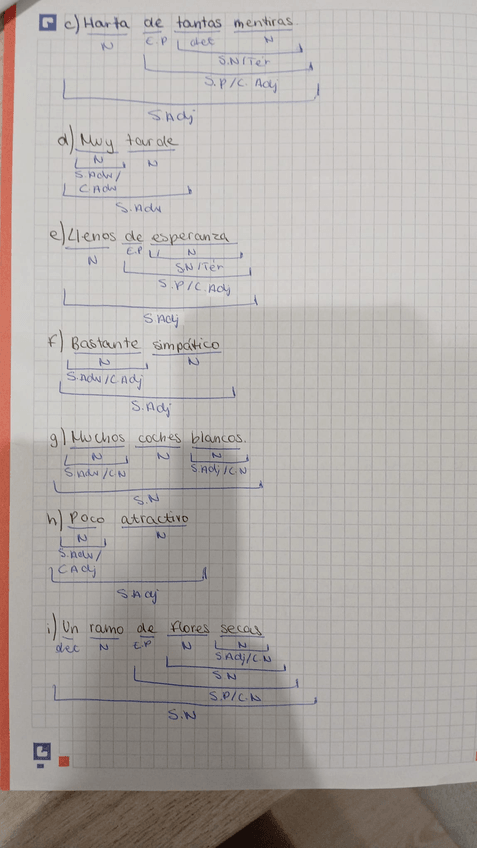 c) Harta de tantas mentiras.
N E.P det N
S.N/Tér
S.P/C.Adj
S Adj
d) Muy tarde
N N
S.Adv/
C Adv
S.Adv
e) Llenos de esperanza
N E.P N
SN/Tér
S.P/C.Adj
S Adj
f) Bastante simpático
N N
S.Adv/C.Adj
S.Adj
g) Muchos coches blancos.
N N N
S.Adv/C.N S.Adj/C.N
S.N
h) Poco atractivo
N N
S.Adv/
C Adj
S Adj
i) Un ramo de flores secas
det N E.P N N
S Adj/C.N
S.N
S.P/C.N
S.N